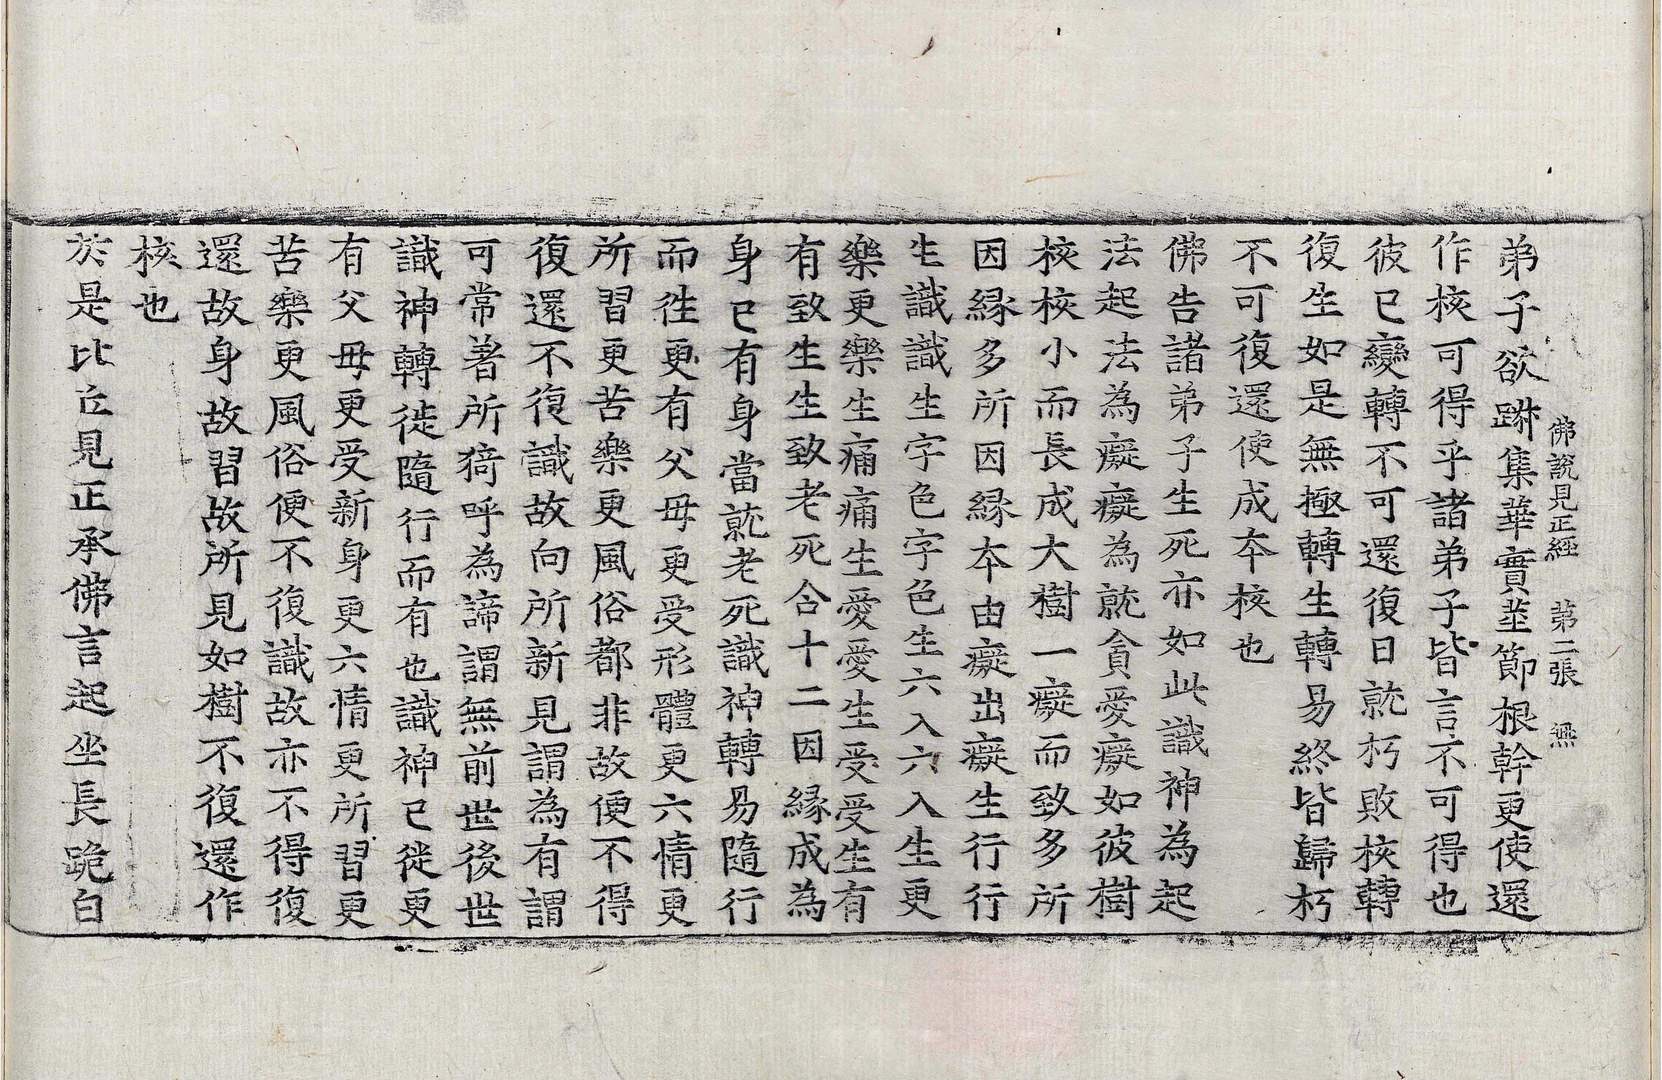 佛說見正經 第二張 無
弟子欲踧集華實莖節根幹更使還
作核可得乎諸弟子皆言不可得也
彼已變轉不可還復日就朽敗核轉
復生如是無極轉生轉易終皆歸朽
不可復還使成夲核也
佛告諸弟子生死亦如此識神為起
法起法為癡癡為就貪愛癡如彼樹
核核小而長成大樹一癡而致多所
因縁多所因因縁夲由癡出癡生行行
生識識生字色字色生六入六入生更
樂更樂生痛痛生愛愛生受受生有
有致生生致老死合十二因縁成為
身已有身當就老死識神轉易隨行
而徃更有父母更受形體更六情更
所習更苦樂更風俗都非故便不得
復還不復識故向所新見謂為有謂
可常著所猗呼為諦謂無前世後世
識神轉徙隨行而有也識神已徙更
有父母更受新身更六情更所習更
苦樂更風俗便不復識故亦不得復
還故身故習故所見如樹不復還作
核也
於是比丘見正承佛言起坐長跪白